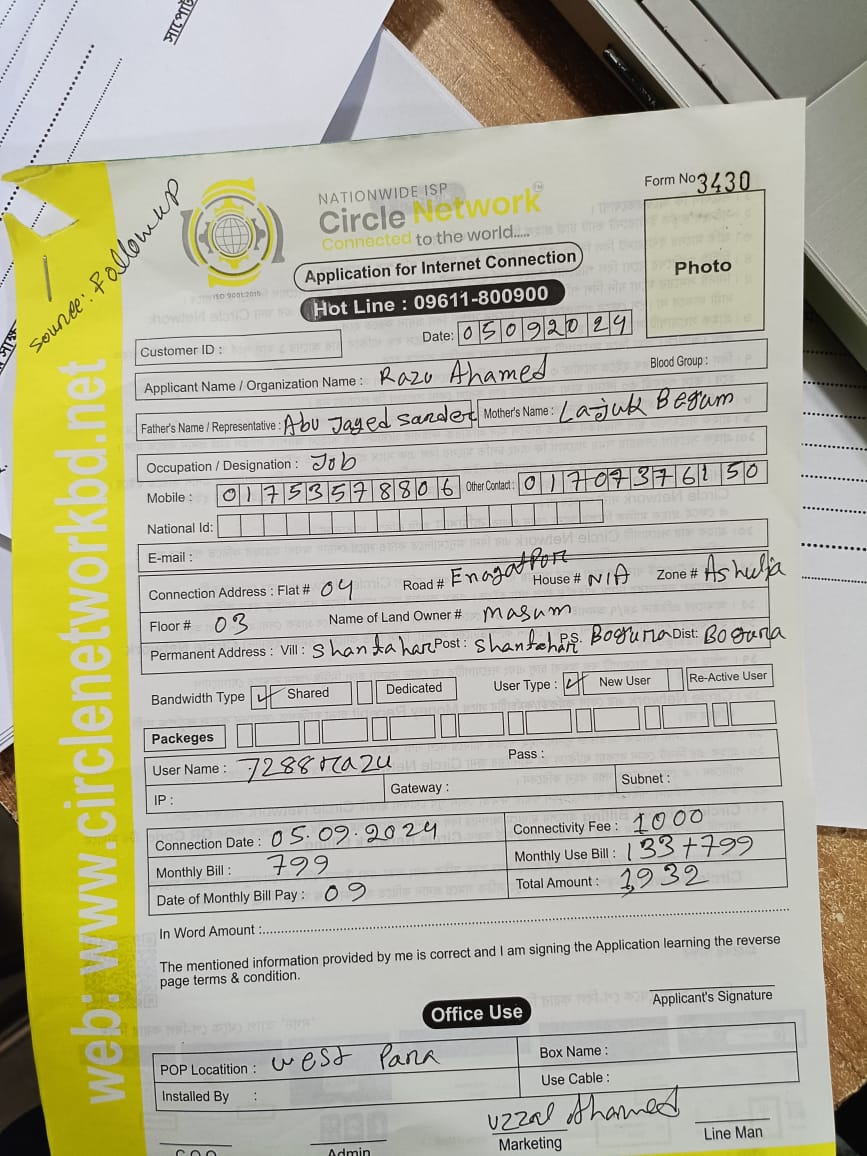 সাপোর্ট
Source: Followup
NATIONWIDE ISP
Circle Network™
Connected to the world.....
ISO 9001:2015
Form No 3430
Photo
Application for Internet Connection
Hot Line : 09611-800900
Customer ID :
Date: 05092024
Applicant Name / Organization Name : Razu Ahamed Blood Group :
Father's Name / Representative : Abu Jayed Sarder Mother's Name : Lajuk Begum
Occupation / Designation : Job
Mobile : 01753578806 Other Contact : 01707376150
National Id:
E-mail :
Connection Address : Flat # 04 Road # Enayatpor House # N/A Zone # Ashulia
Floor # 03 Name of Land Owner # Masum
Permanent Address : Vill : Shantahar Post : Shantahar P.S. Bogura Dist: Bogura
Bandwidth Type Shared Dedicated User Type : New User Re-Active User
Packeges
User Name : 7288razu Pass :
IP : Gateway : Subnet :
Connection Date : 05.09.2024 Connectivity Fee : 1000
Monthly Bill : 799 Monthly Use Bill : 133+799
Date of Monthly Bill Pay : 09 Total Amount : 1,932
In Word Amount :
The mentioned information provided by me is correct and I am signing the Application learning the reverse
page terms & condition.
Applicant's Signature
Office Use
POP Locatition : West Para Box Name :
Installed By : Use Cable :
Uzzal Ahamed
Admin Marketing Line Man
web: www.circlenetworkbd.net